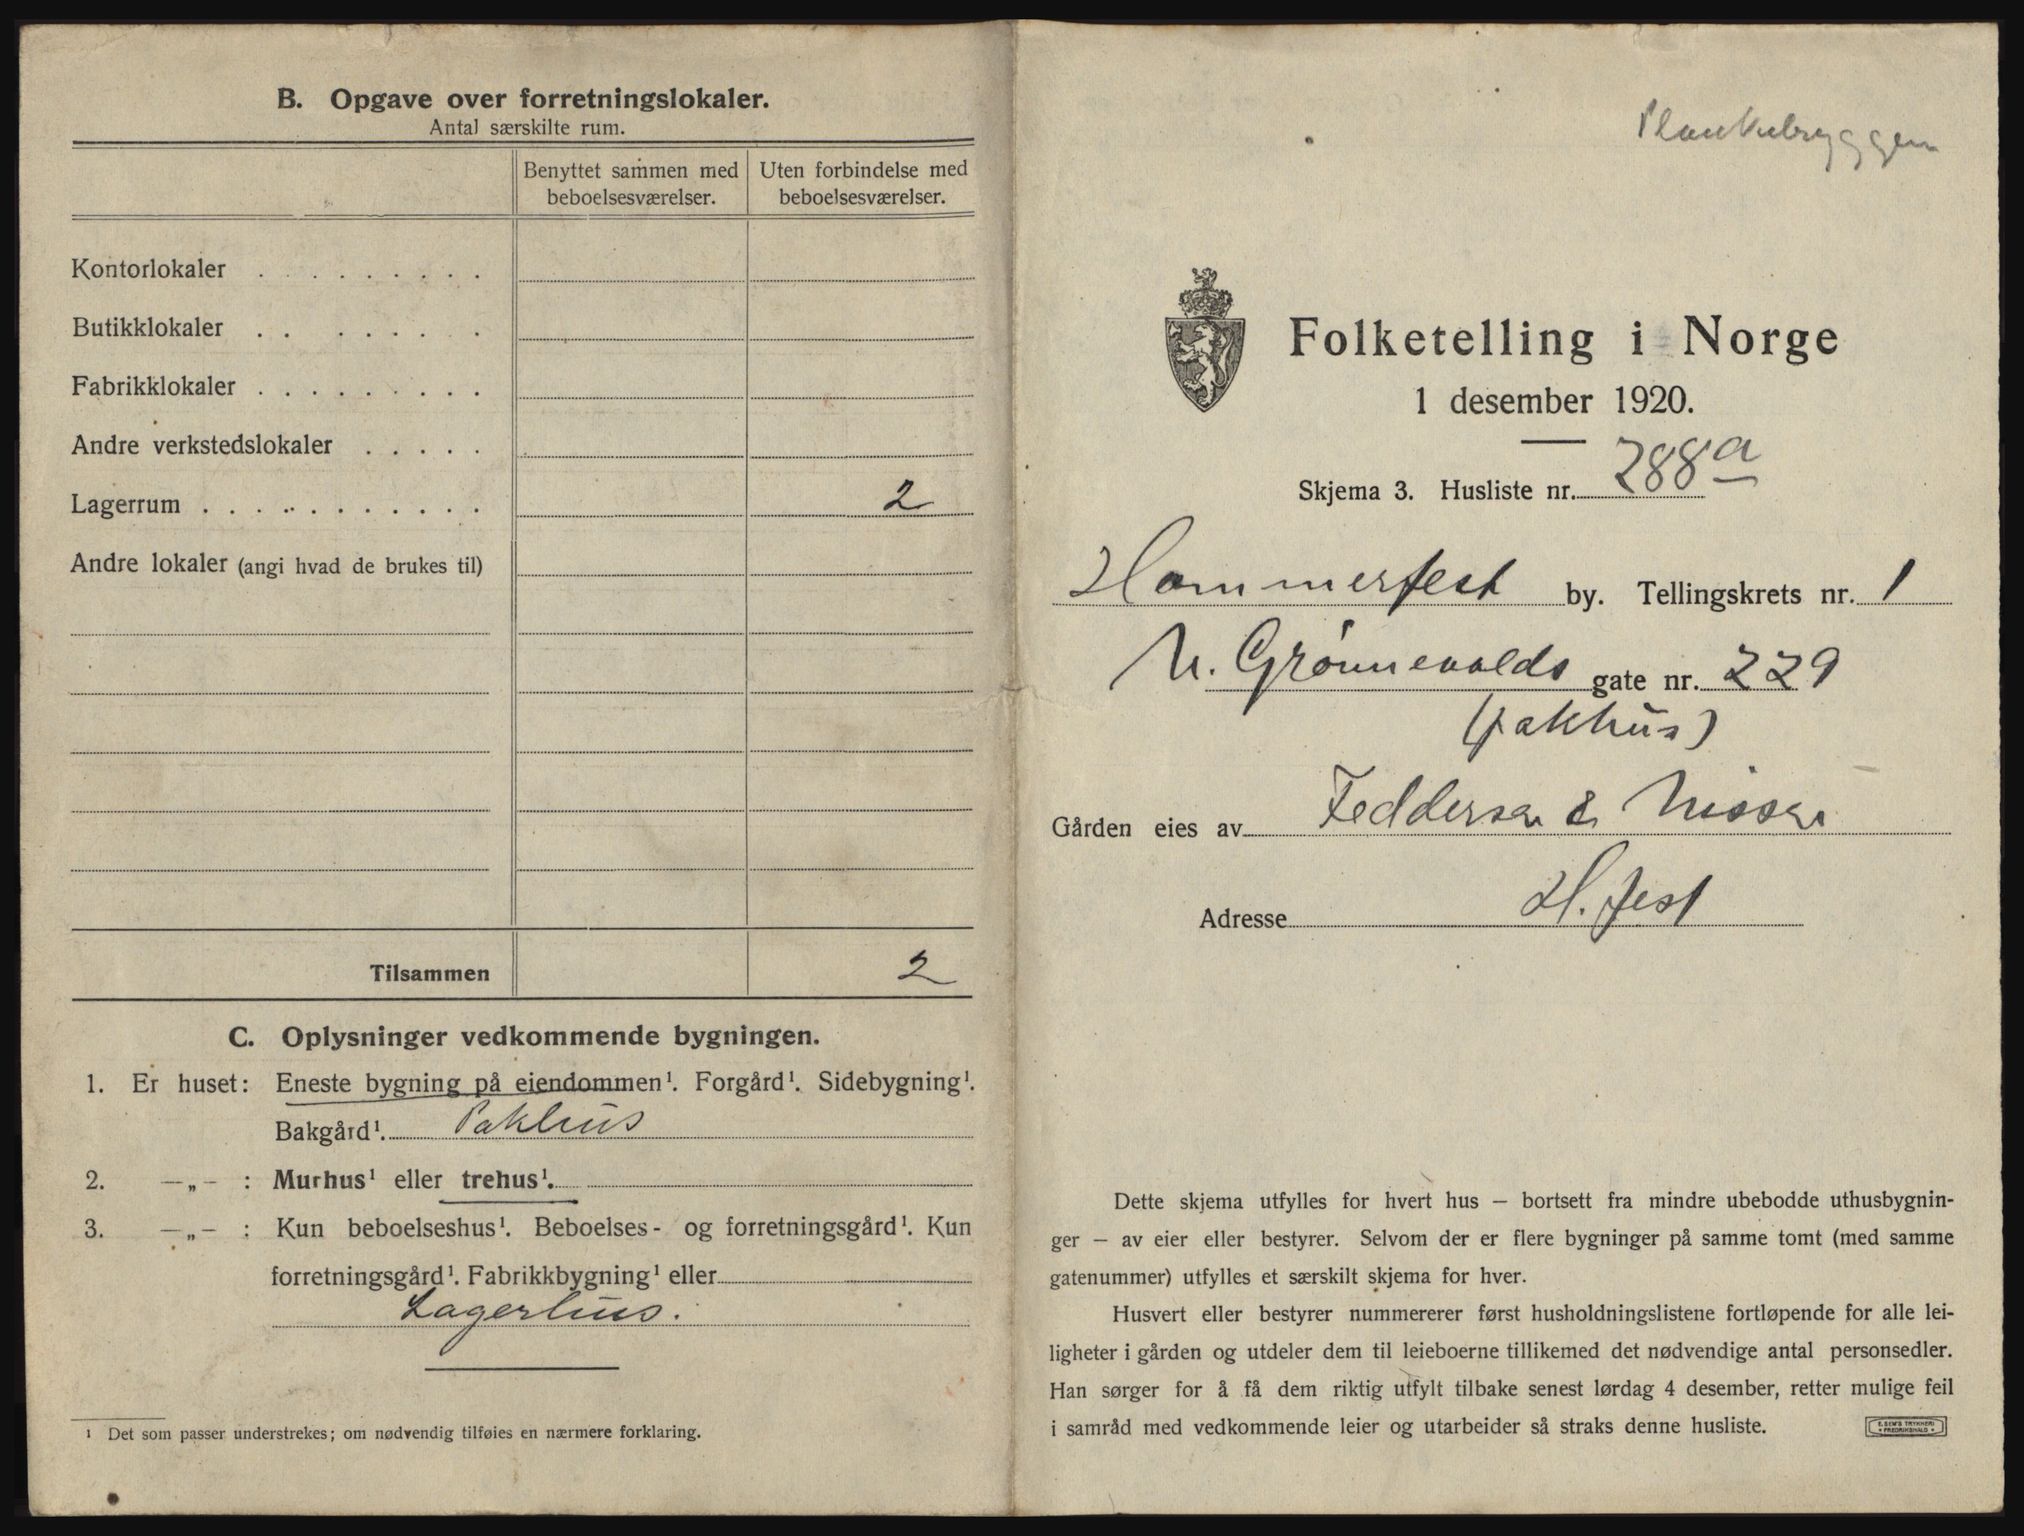 B. Opgave over forretningslokaler.
Antal særskilte rum.
Benyttet sammen med beboelsesværelser.
Uten forbindelse med beboelsesværelser.
Kontorlokaler . . . . . . . . .
Butikklokaler . . . . . . . .
Fabrikklokaler . . . . . . . . .
Andre verkstedslokaler . . . . .
Lagerrum . . . . . . . . . . . . 2
Andre lokaler (angi hvad de brukes til)
Tilsammen 2
C. Oplysninger vedkommende bygningen.
1. Er huset: Eneste bygning på eiendommen¹. Forgård¹. Sidebygning¹.
Bakgård¹. Pakhus
2. —„— : Murhus¹ eller trehus¹.
3. —„— : Kun beboelseshus¹. Beboelses- og forretningsgård¹. Kun
forretningsgård¹. Fabrikkbygning¹ eller
Lagerhus.
¹ Det som passer understrekes; om nødvendig tilføies en nærmere forklaring.
Plankebryggen
Folketelling i Norge
1 desember 1920.
Skjema 3. Husliste nr. 288a
Hammerfest by. Tellingskrets nr. 1
N. Grønnevolds gate nr. 229
(pakhus)
Gården eies av Feddersen & Nissen
Adresse H.fest
Dette skjema utfylles for hvert hus — bortsett fra mindre ubebodde uthusbygnin-
ger — av eier eller bestyrer. Selvom der er flere bygninger på samme tomt (med samme
gatenummer) utfylles et særskilt skjema for hver.
Husvert eller bestyrer nummererer først husholdningslistene fortløpende for alle lei-
ligheter i gården og utdeler dem til leieboerne tillikemed det nødvendige antal personsedler.
Han sørger for å få dem riktig utfylt tilbake senest lørdag 4 desember, retter mulige feil
i samråd med vedkommende leier og utarbeider så straks denne husliste.
E. SEM'S TRYKKERI
• FREDRIKSHALD •